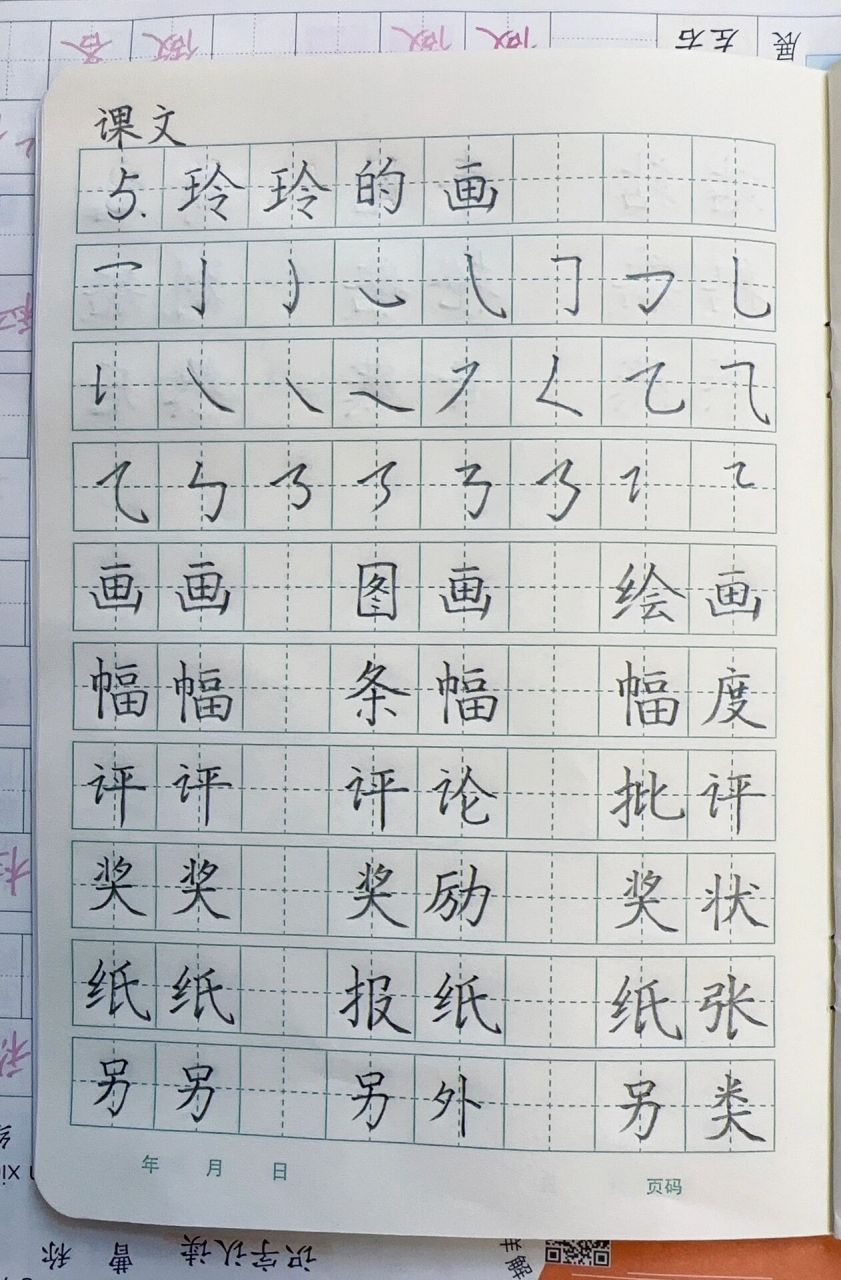 展
左右
课文
5. 玲玲的画
画画 图画 绘画
幅幅 条幅 幅度
评评 评论 批评
奖奖 奖励 奖状
纸纸 报纸 纸张
另另 另外 另类
年 月 日 页码
识字认读
曹
称